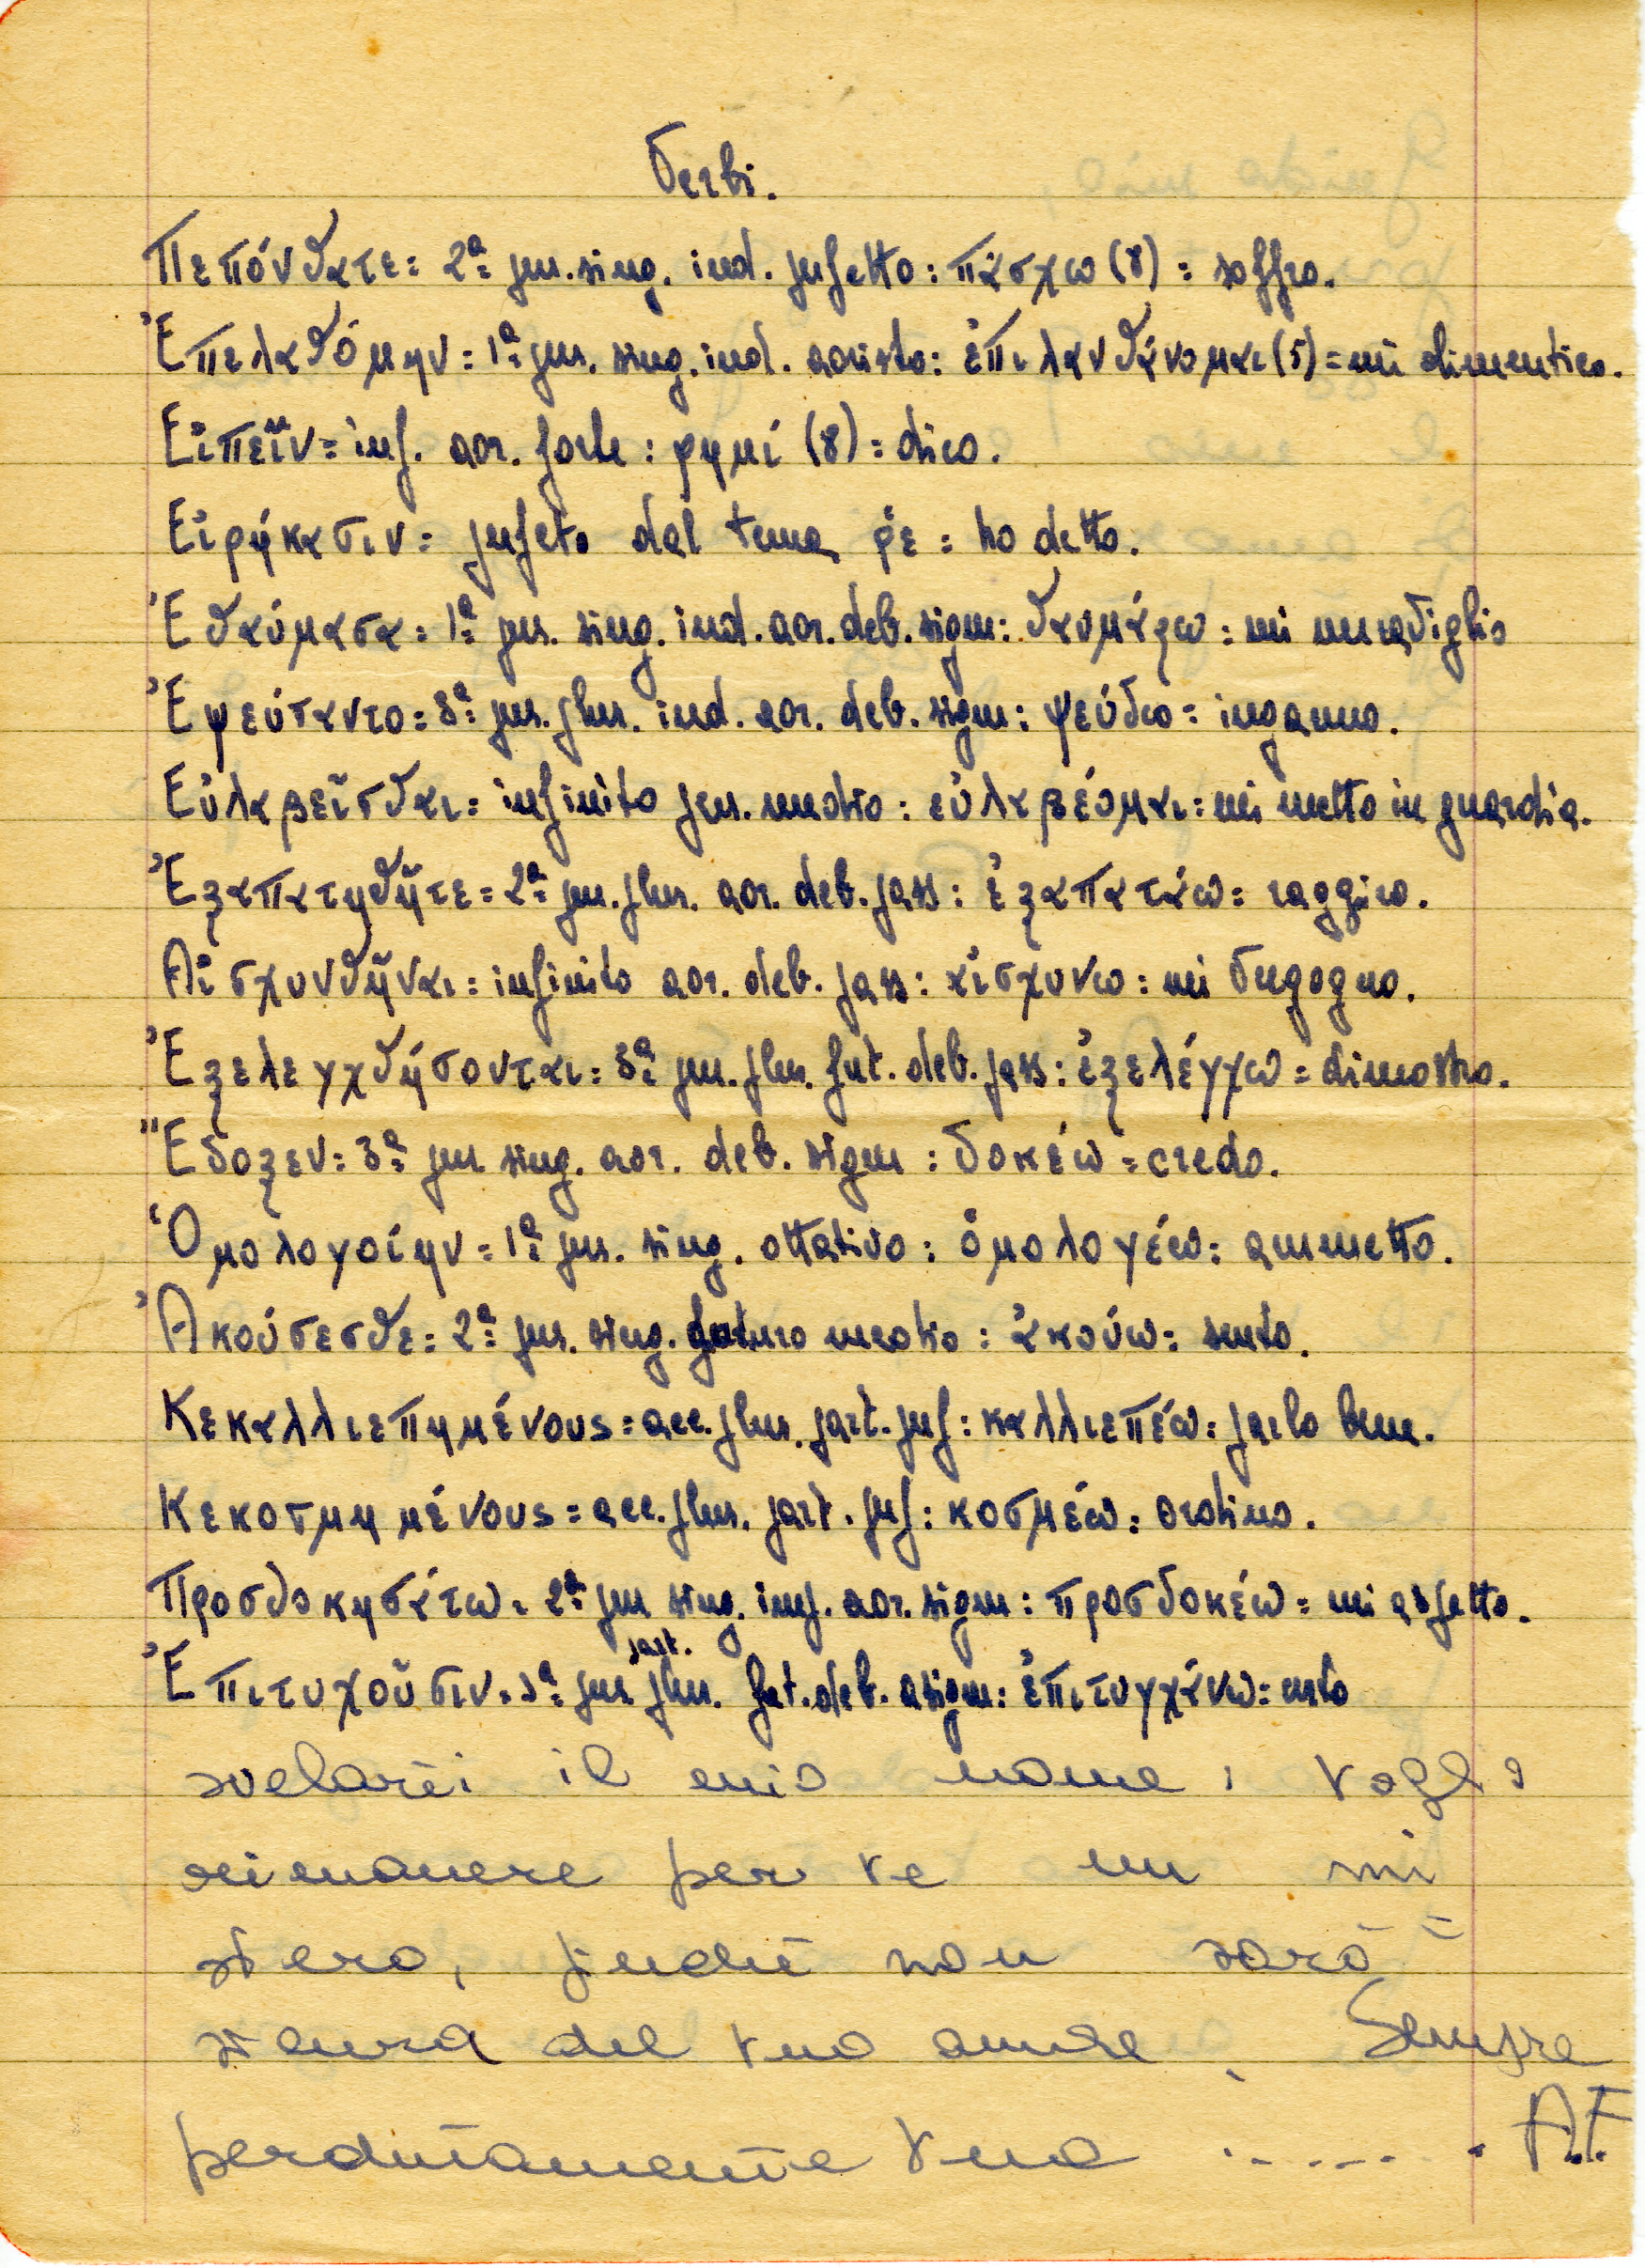 Verbi.
Πεπόνθατε = 2ª per. sing. ind. perfetto : πάσχω (8) = soffro.
Ἐπελαθόμην = 1ª per. sing. ind. aoristo : ἐπιλανθάνομαι (5) = mi dimentico.
Εἰπεῖν = inf. aor. forte : φημί (8) = dico.
Εἰρήκασιν = perfeto dal tema ῥε = ho detto.
Ἐθαύμασα = 1ª per. sing. ind. aor. deb. sigm : θαυμάζω = mi meraviglio
Ἐψεύσαντο = 3ª per. plur. ind. aor. deb. sigm : ψεύδω = inganno.
Εὐλαβεῖσθαι = infinito per. medio : εὐλαβέομαι = mi metto in guardia.
Ἐξαπατηθῆτε = 2ª per. plur. aor. deb. pass : ἐξαπατάω = raggiro.
Αἰσχυνθῆναι = infinito aor. deb. pass : αἰσχυνω = mi vergogno.
Ἐξελεγχθήσονται = 3ª per. plur. fut. deb. pass : ἐξελέγχω = dimostro.
Ἔδοξεν = 3ª per. sing. aor. deb. sigm : δοκέω = credo.
Ὁμολογοίην = 1ª per. sing. ottativo : ὁμολογέω = ammetto.
Ἀκούσεσθε = 2ª per. sing. futuro medio : ἀκούω = sento.
Κεκαλλιεπημένους = acc. plur. part. perf : καλλιεπέω = parlo bene.
Κεκοσμημένους = acc. plur. part. perf : κοσμέω = ordino.
Προσδοκησάτω = 2ª per sing. imp. aor. sigm : προσδοκέω = mi aspetto.
part.
Ἐπιτυχοῦσιν = 3ª per. plur. fut. deb. asigm : ἐπιτυγχάνω =
svelarti il mio nome, voglio
rimanere per te un mi
stero, finché non sarò =
sicura del tuo amore. Sempre
perdutamente tua ....... A.F.